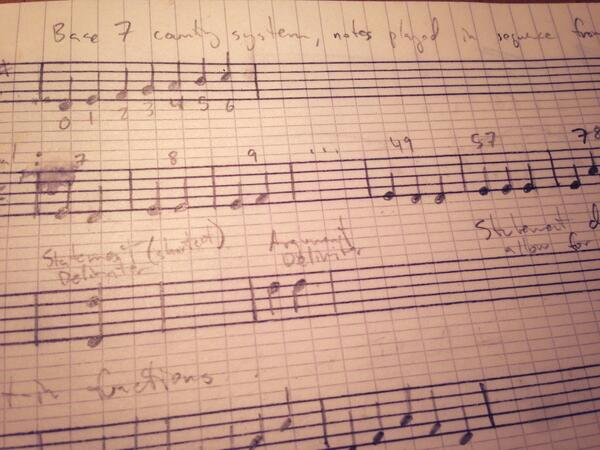 Base 7 counting system, notes played in sequence from
0 1 2 3 4 5 6
7 8 9 ... 49 57
Statement (shortest) Argument Statement
Delimiter Delimiter allow for
functions